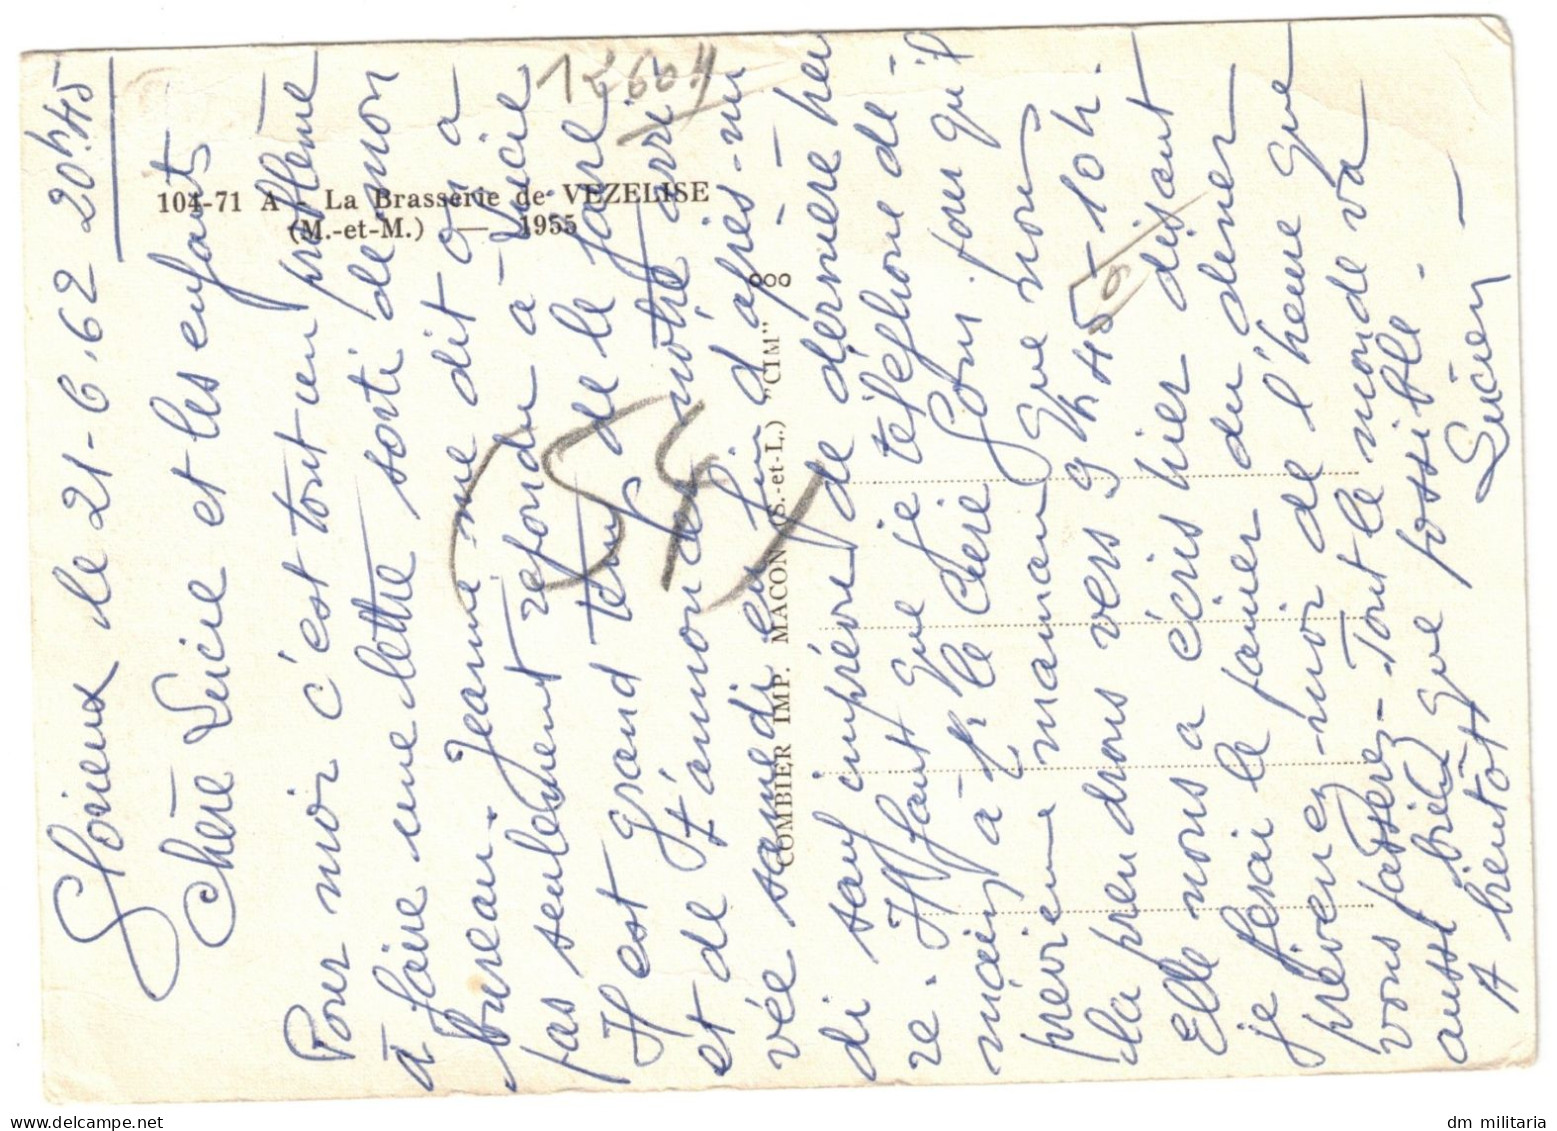 Glorieux le 21-6.62 20h45
Chère Lucie et les enfants
Pour moi c'est tout un problème
à faire une lettre sorti de mon
bureau. Jeanne me dit on a
pas seulement répondu à Lucie
Il est grand temps de le faire
et de t'annoncer notre arri
vée samedi en fin d'après-mi
di sauf imprévu de dernière heu
re. Il faut que je téléphone de-
main à M. le Curé Goni pour qu'il
prévienne maman que nous
la prendrons vers 9h45-10h.
Elle nous a écris hier disant
je ferai le panier du diner
prévenez-moi de l'heure que
vous passerez - Tout le monde va
aussi bien que possible -
A bientôt Lucien
104-71 A - La Brasserie de VEZELISE
(M.-et-M.) — 1955
COMBIER IMP. MACON (S.-et-L.) "CIM"
(54)
dm militaria